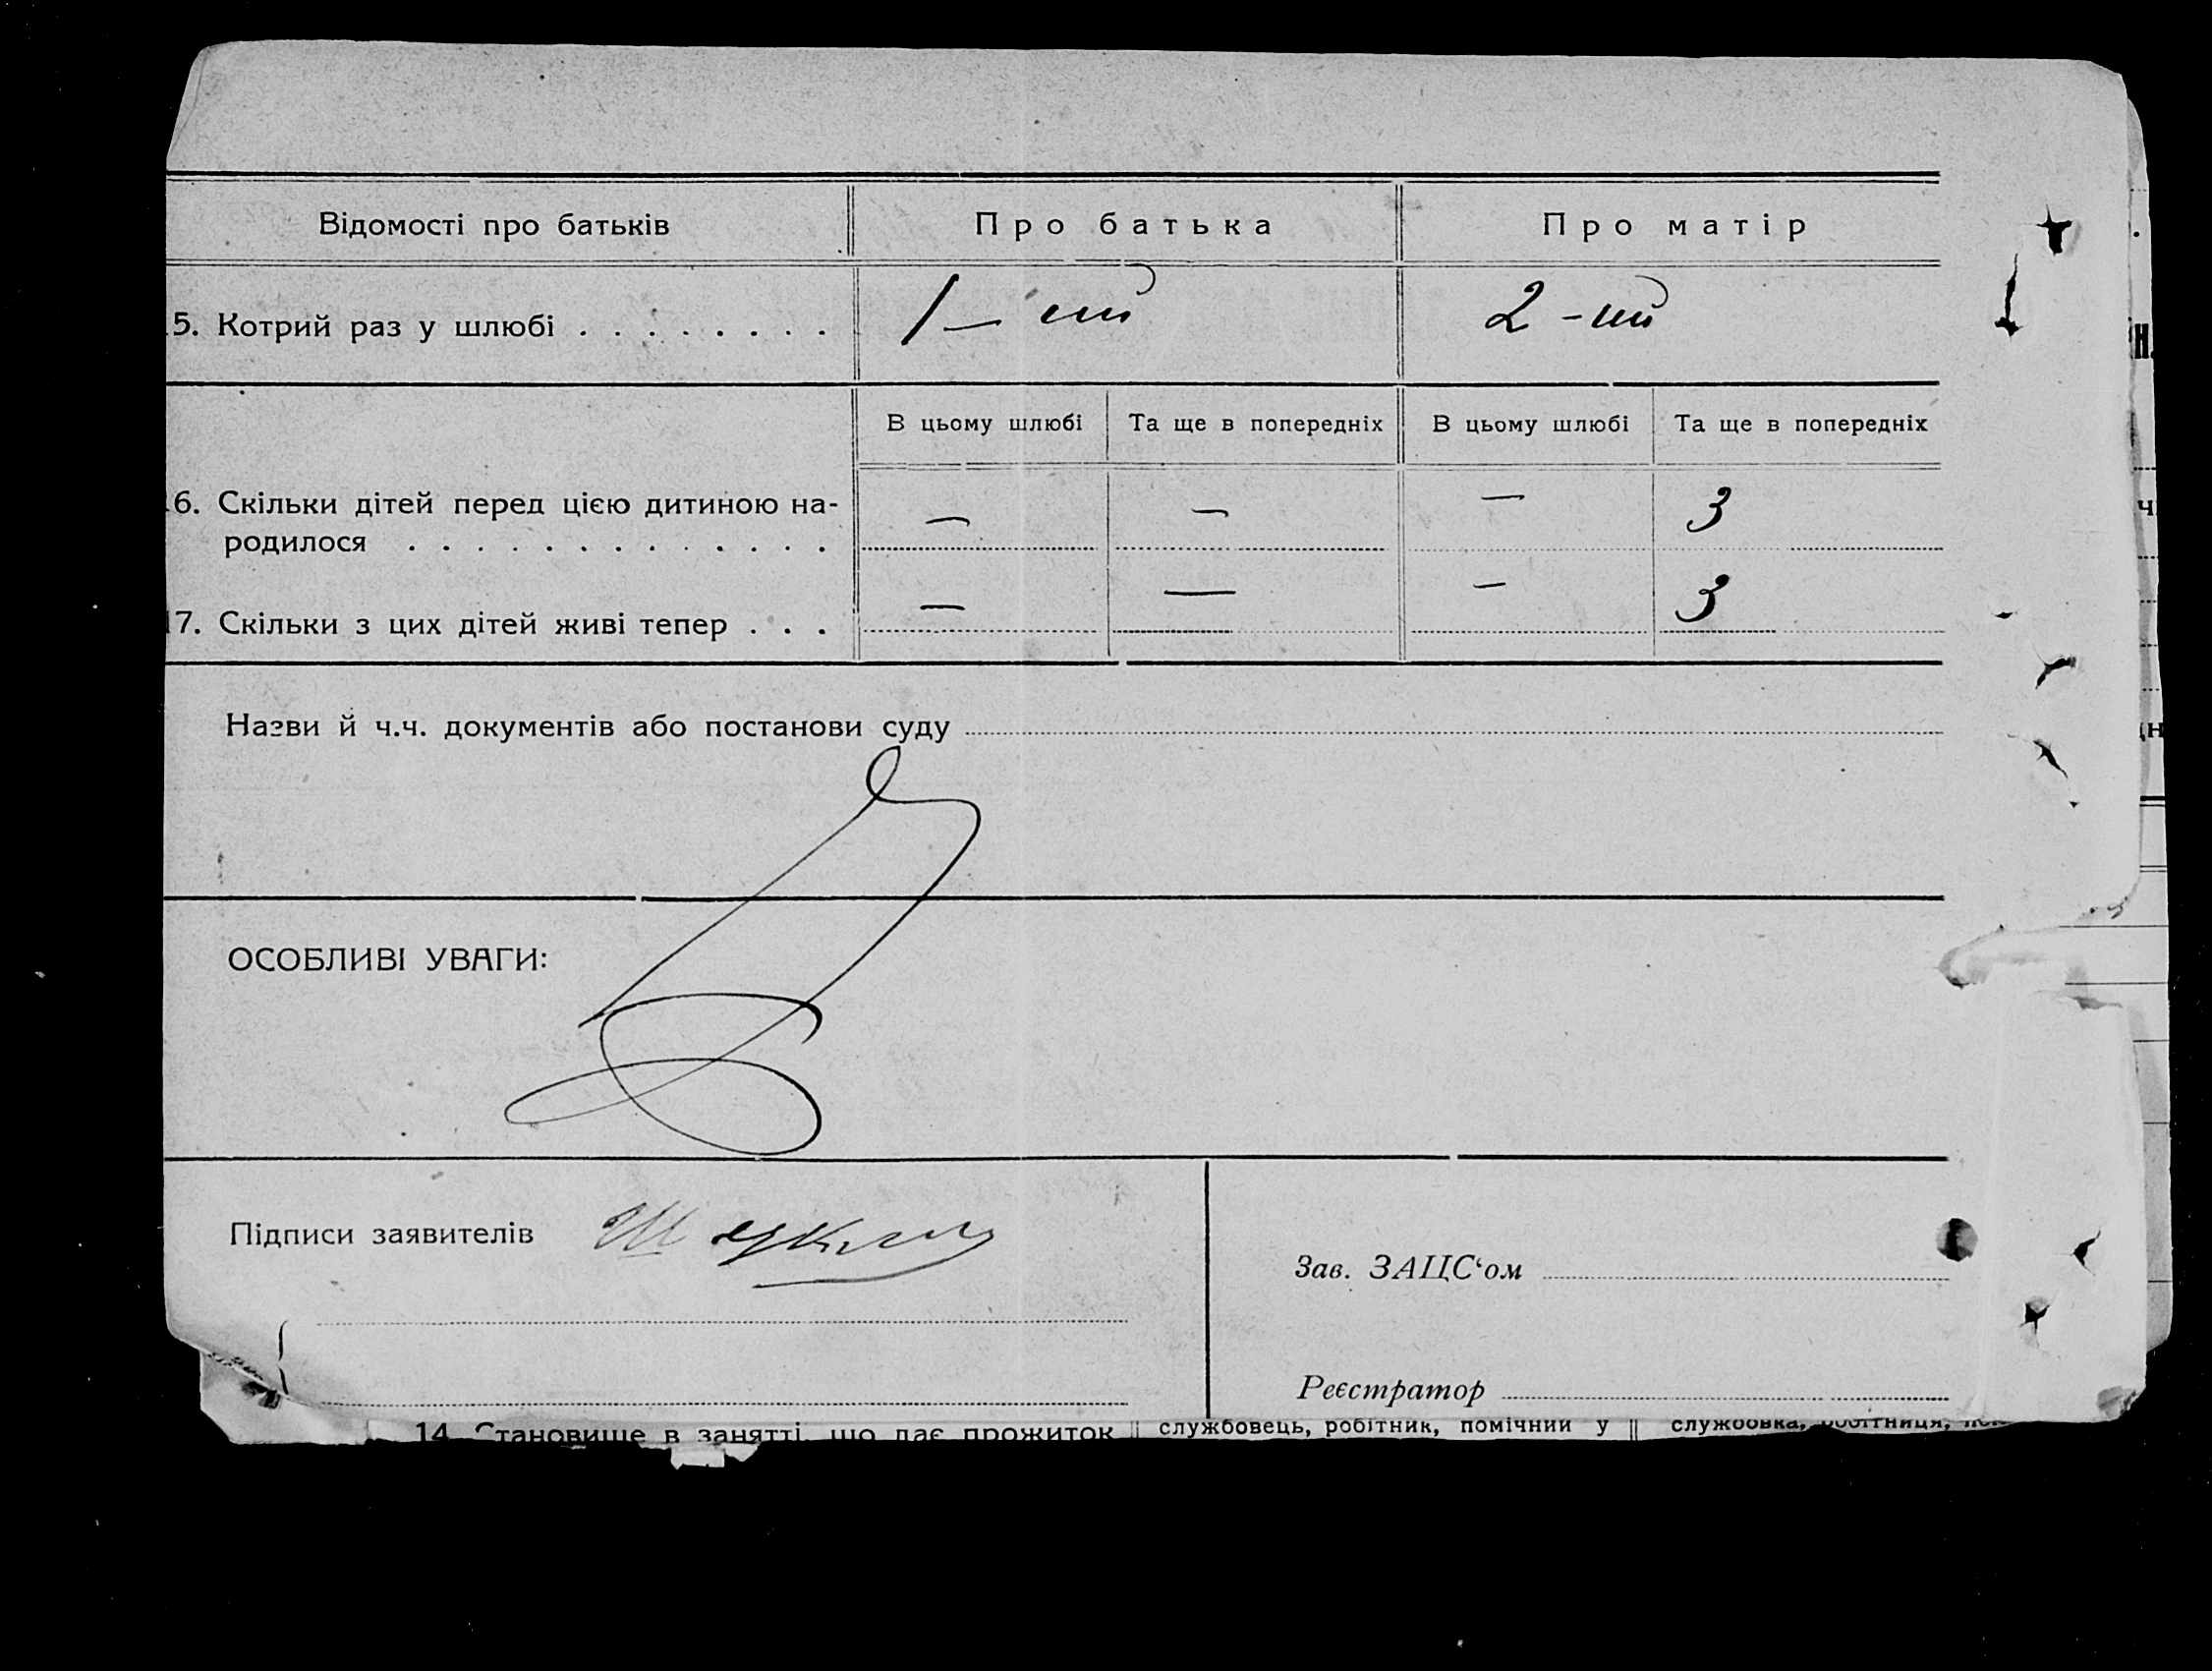 Відомості про батьків Про батька Про матір
5. Котрий раз у шлюбі . . . . . . . . 1 – ий 2 - ий
В цьому шлюбі Та ще в попередніх В цьому шлюбі Та ще в попередніх
6. Скільки дітей перед цією дитиною на-
родилося . . . . . . . . . . . . . — — — 3
17. Скільки з цих дітей живі тепер . . . — — — 3
Назви й ч.ч. документів або постанови суду
ОСОБЛИВІ УВАГИ:
Підписи заявителів
Зав. ЗАЦС‘ом
Реєстратор
14. Становище в занятті, що дає прожиток службовець, робітник, помічний у службовка, робітниця,